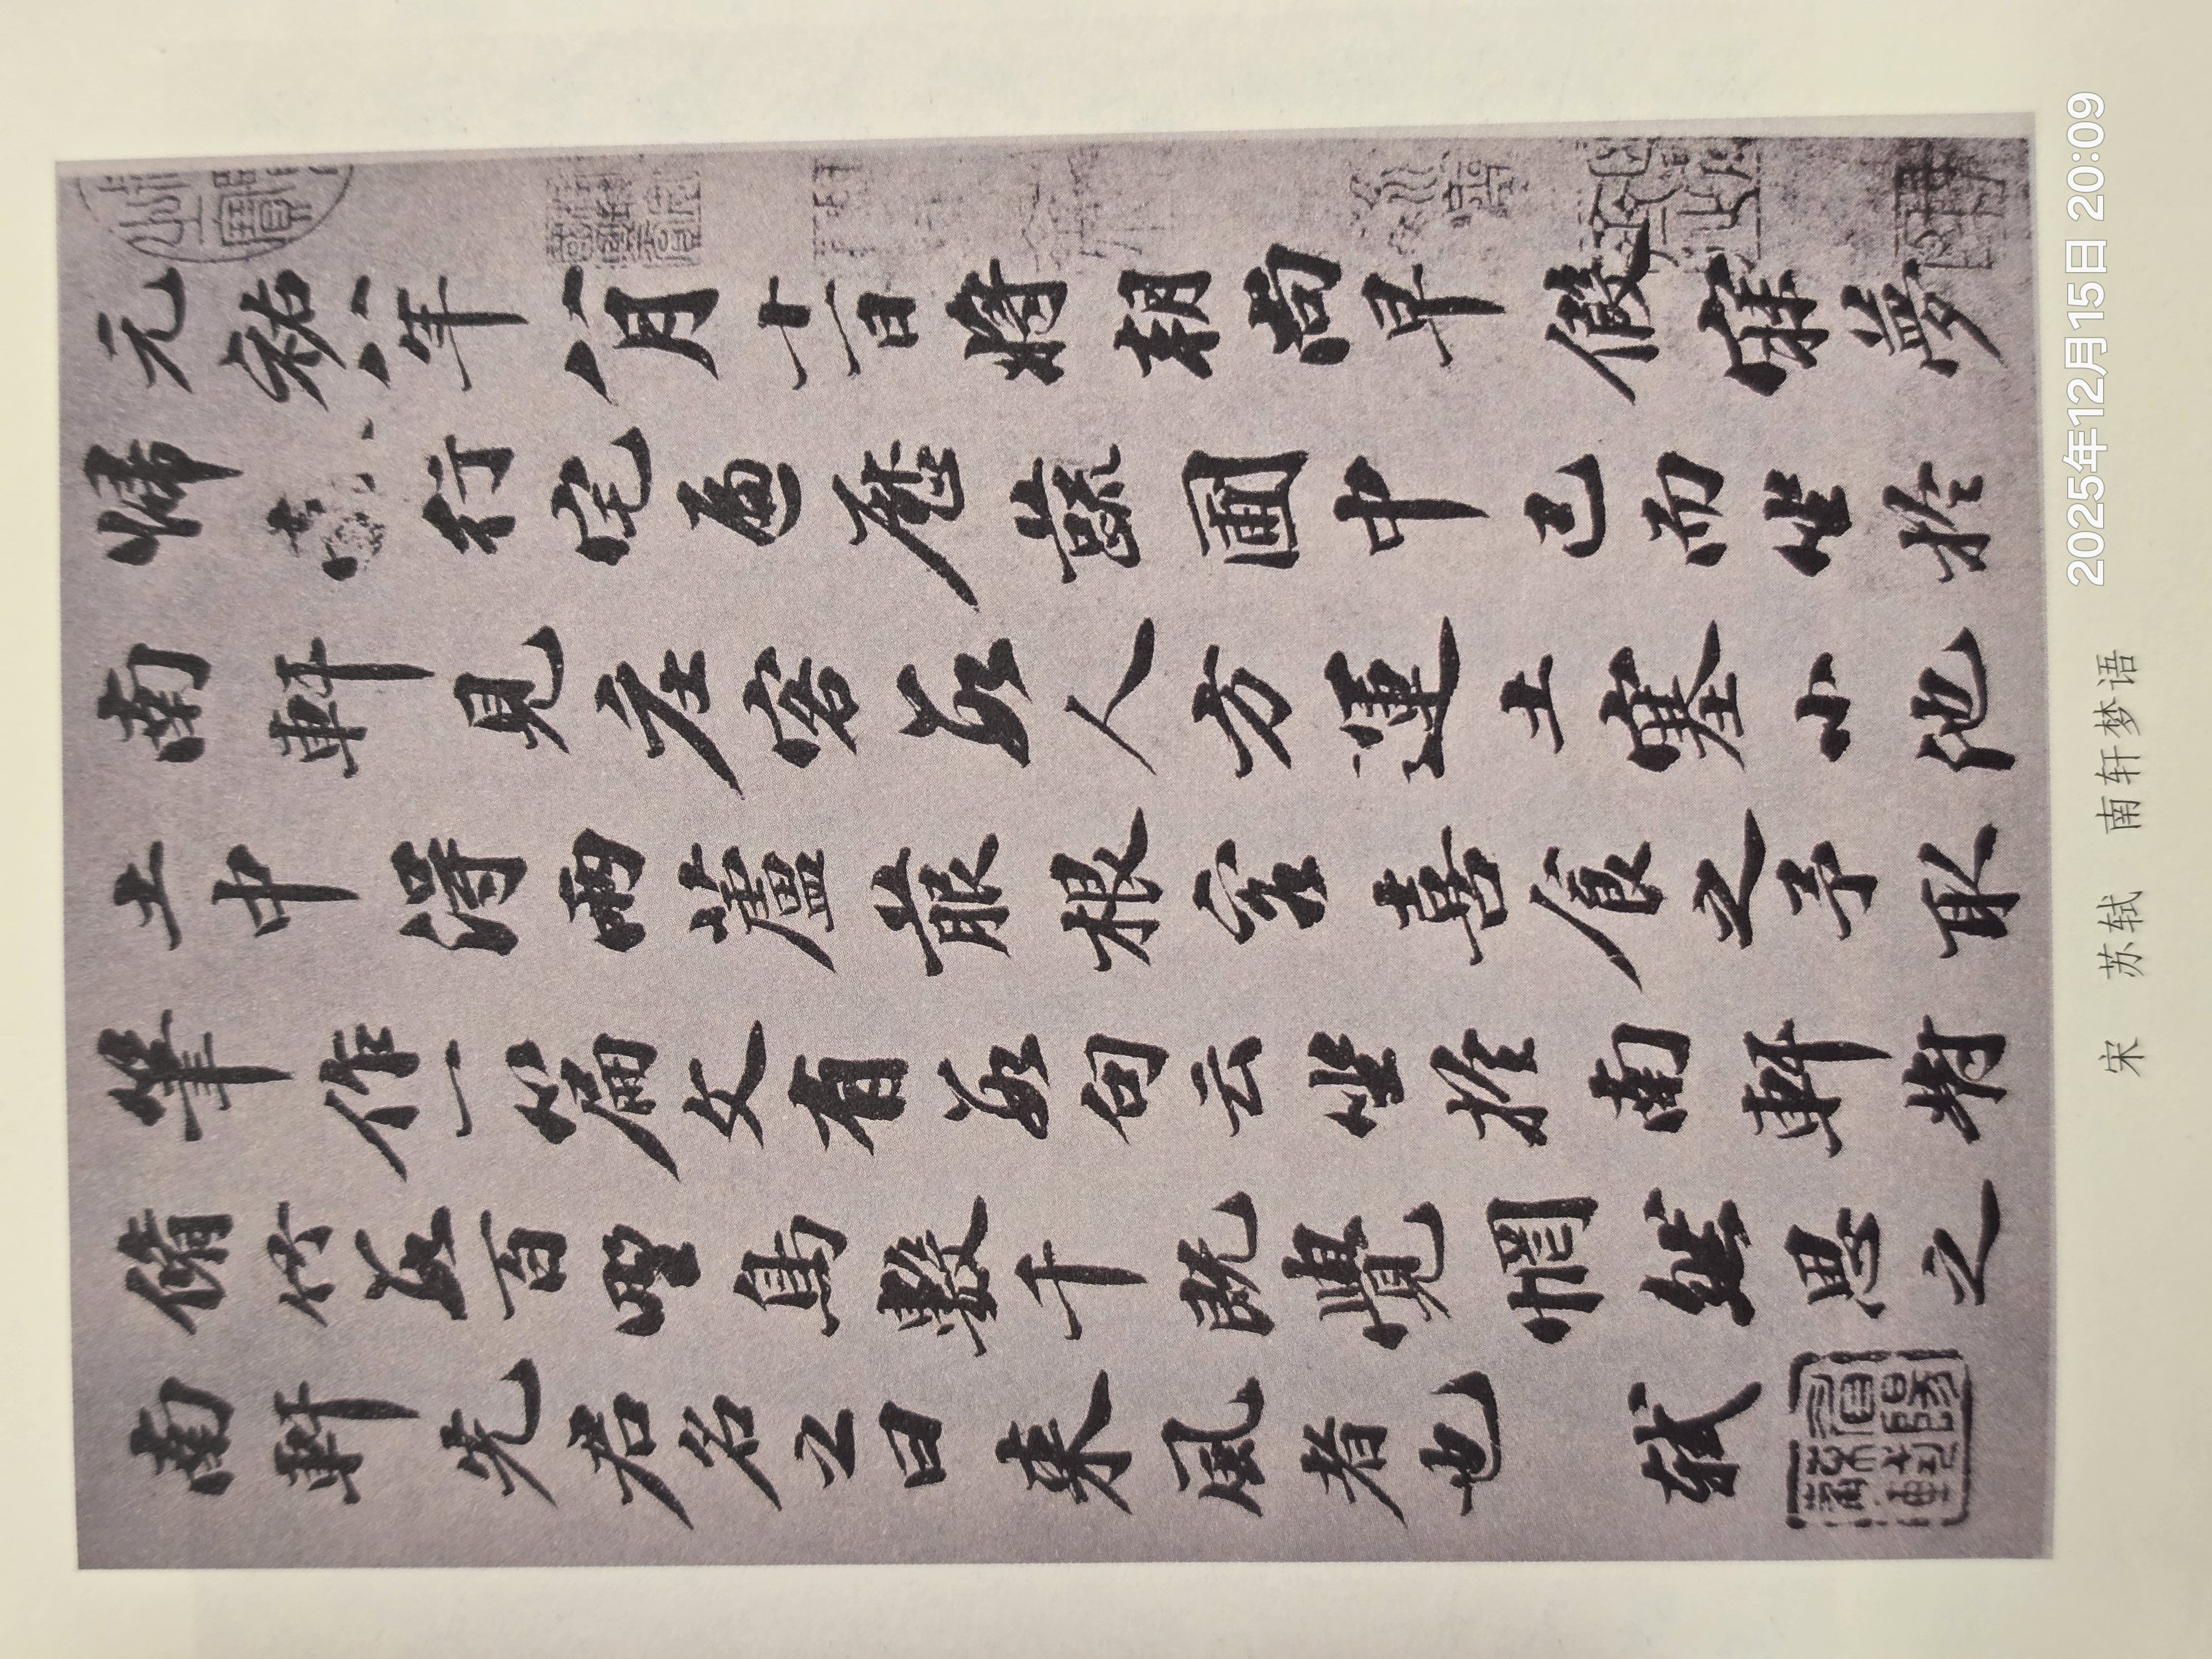 元祐八年八月十一日將朝尚早假寐夢
歸行宅遍歷蔬圃中已而坐於
南軒見莊客數人方運土塞小池
土中得兩蘆菔根客喜食之予取
筆作一篇文有數句云坐於南軒對
脩竹數百野鳥數千既覺惘然思之
南軒先君名之曰來風者也 軾
宋 苏轼 南轩梦语
2025年12月15日 20:09